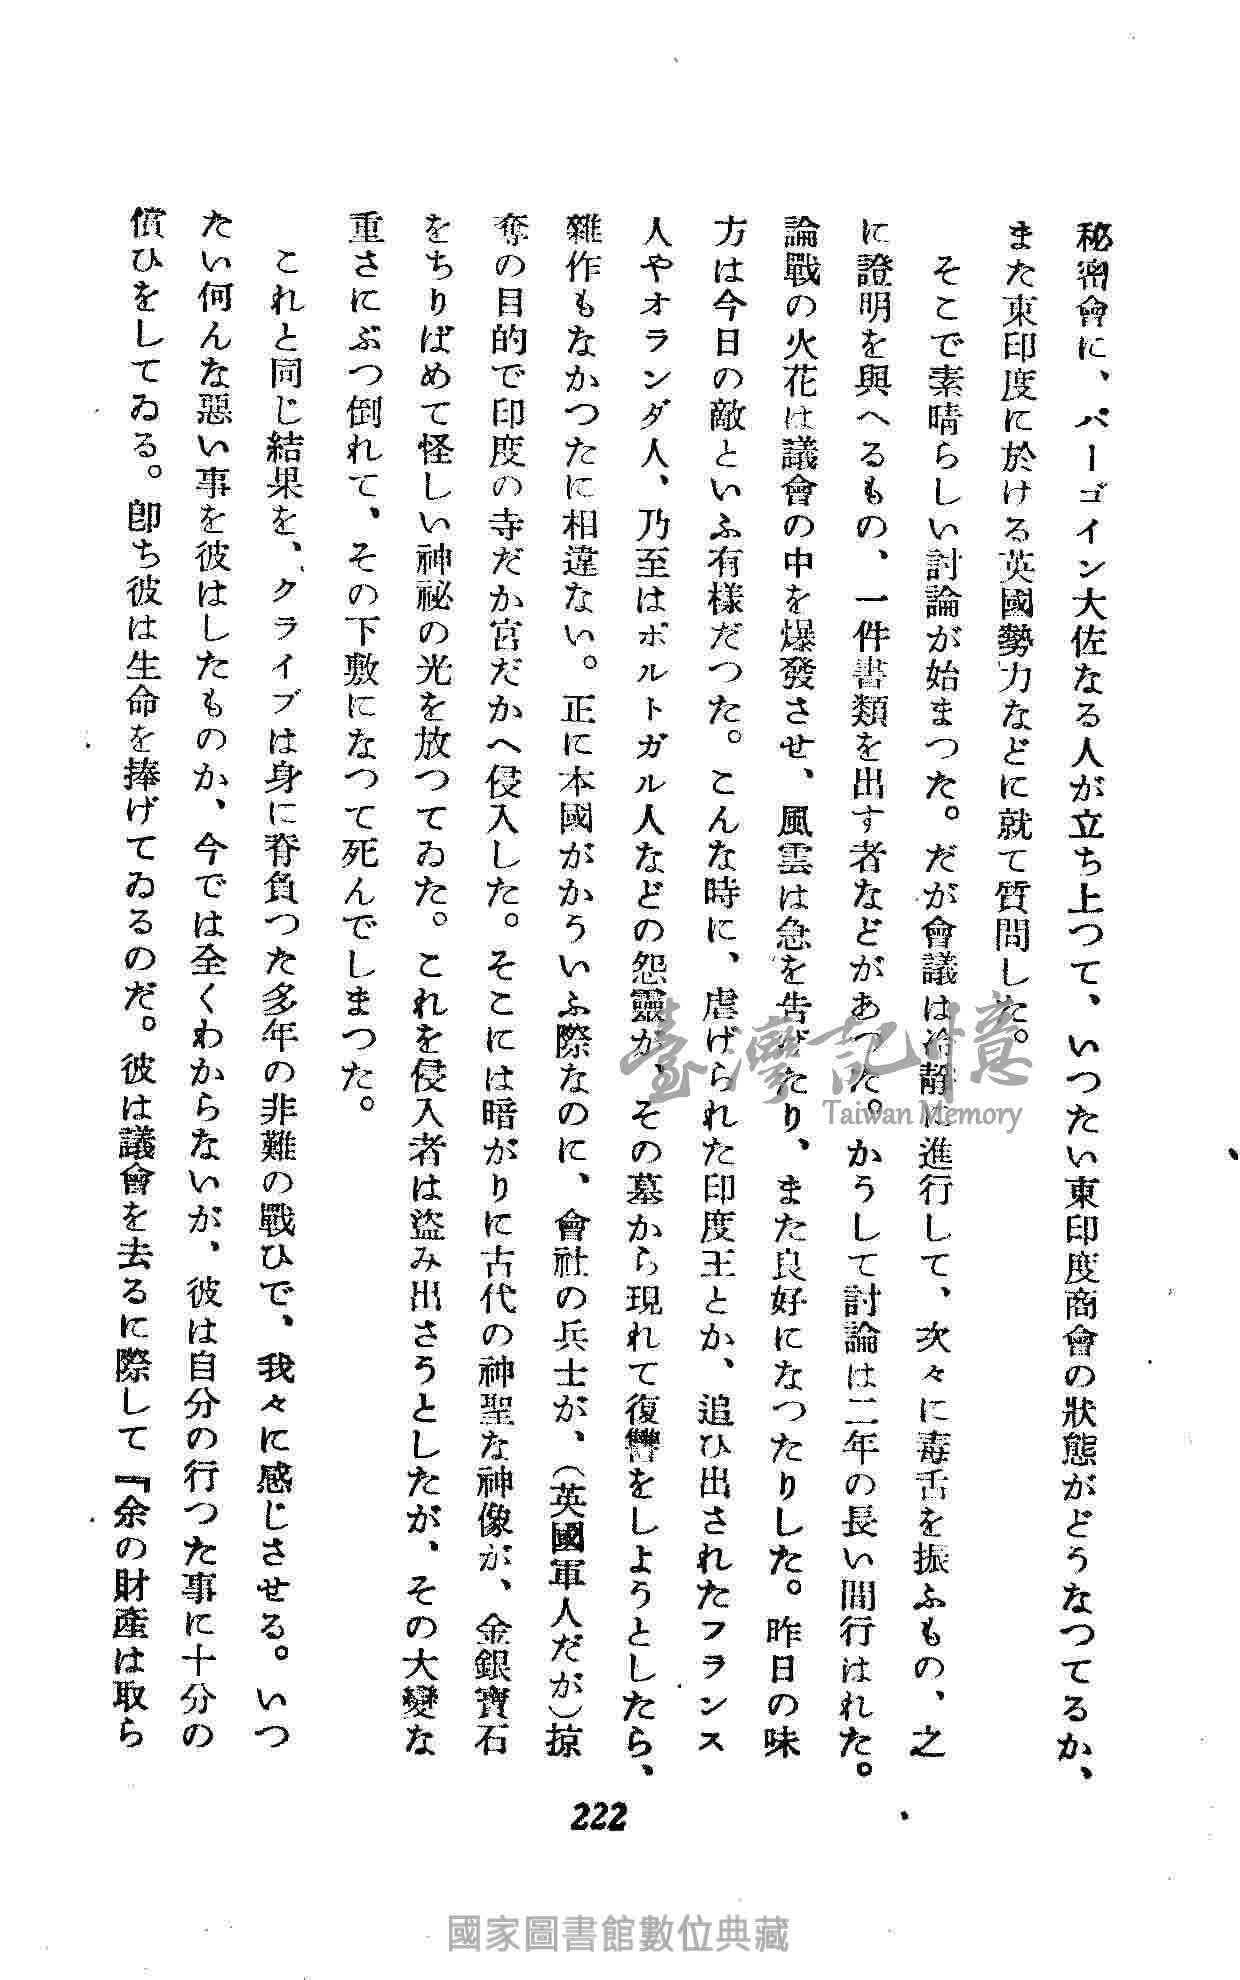 秘密會に、バーゴイン大佐なる人が立ち上つて、いつたい東印度商會の狀態がどうなつてるか、
また東印度に於ける英國勢力などに就て質問した。
そこで素晴らしい討論が始まつた。だが會議は冷靜に進行して、次々に毒舌を振ふもの、之
に證明を與へるもの、一件書類を出す者などがあつた。かうして討論は二年の長い間行はれた。
論戰の火花は議會の中を爆發させ、風雲は急を告げたり、また良好になつたりした。昨日の味
方は今日の敵といふ有樣だつた。こんな時に、虐げられた印度王とか、追ひ出されたフランス
人やオランダ人、乃至はポルトガル人などの怨靈が、その墓から現れて復讐をしようとしたら、
雜作もなかつたに相違ない。正に本國がかういふ際なのに、會社の兵士が、（英國軍人だが）掠
奪の目的で印度の寺だか宮だかへ侵入した。そこには暗がりに古代の神聖な神像が、金銀寶石
をちりばめて怪しい神祕の光を放つてゐた。これを侵入者は盜み出さうとしたが、その大變な
重さにぶつ倒れて、その下敷になつて死んでしまつた。
これと同じ結果を、クライブは身に脊負つた多年の非難の戰ひで、我々に感じさせる。いつ
たい何んな惡い事を彼はしたものか、今では全くわからないが、彼は自分の行つた事に十分の
償ひをしてゐる。卽ち彼は生命を捧げてゐるのだ。彼は議會を去るに際して『余の財產は取ら
222
臺灣記憶
Taiwan Memory
國家圖書館數位典藏